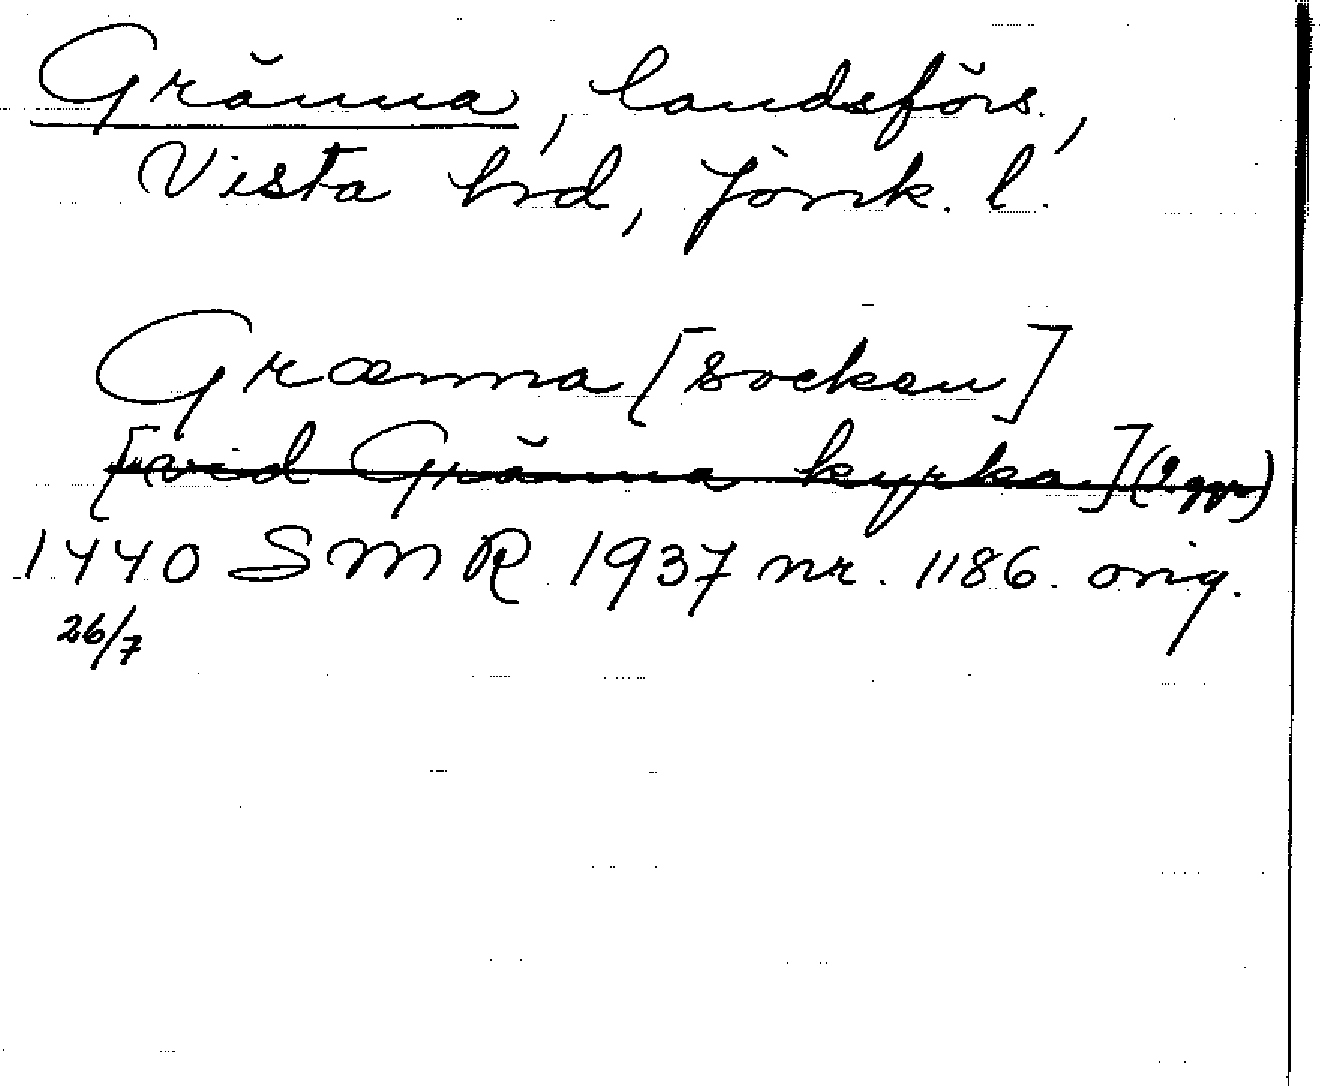 Gränna, landsförs.,
Vista hrd, Jönk. l.
Grænna [socken]
[vid Gränna kyrka] (2 ggr)
1440 SMR 1937 nr. 1186. orig.
26/7